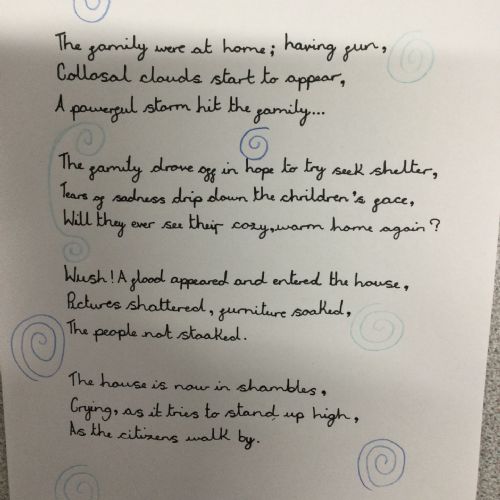 The family were at home; having fun,
Collosal clouds start to appear,
A powerful storm hit the family...
The family drove off in hope to try seek shelter,
Tears of sadness drip down the chrildren's face,
Will they ever see their cozy, warm home again?
Wush! A flood appeared and entered the house,
Pictures shattered, furniture soaked,
The people not stoaked.
The house is now in shambles,
Crying, as it tries to stand up high,
As the citizens walk by.